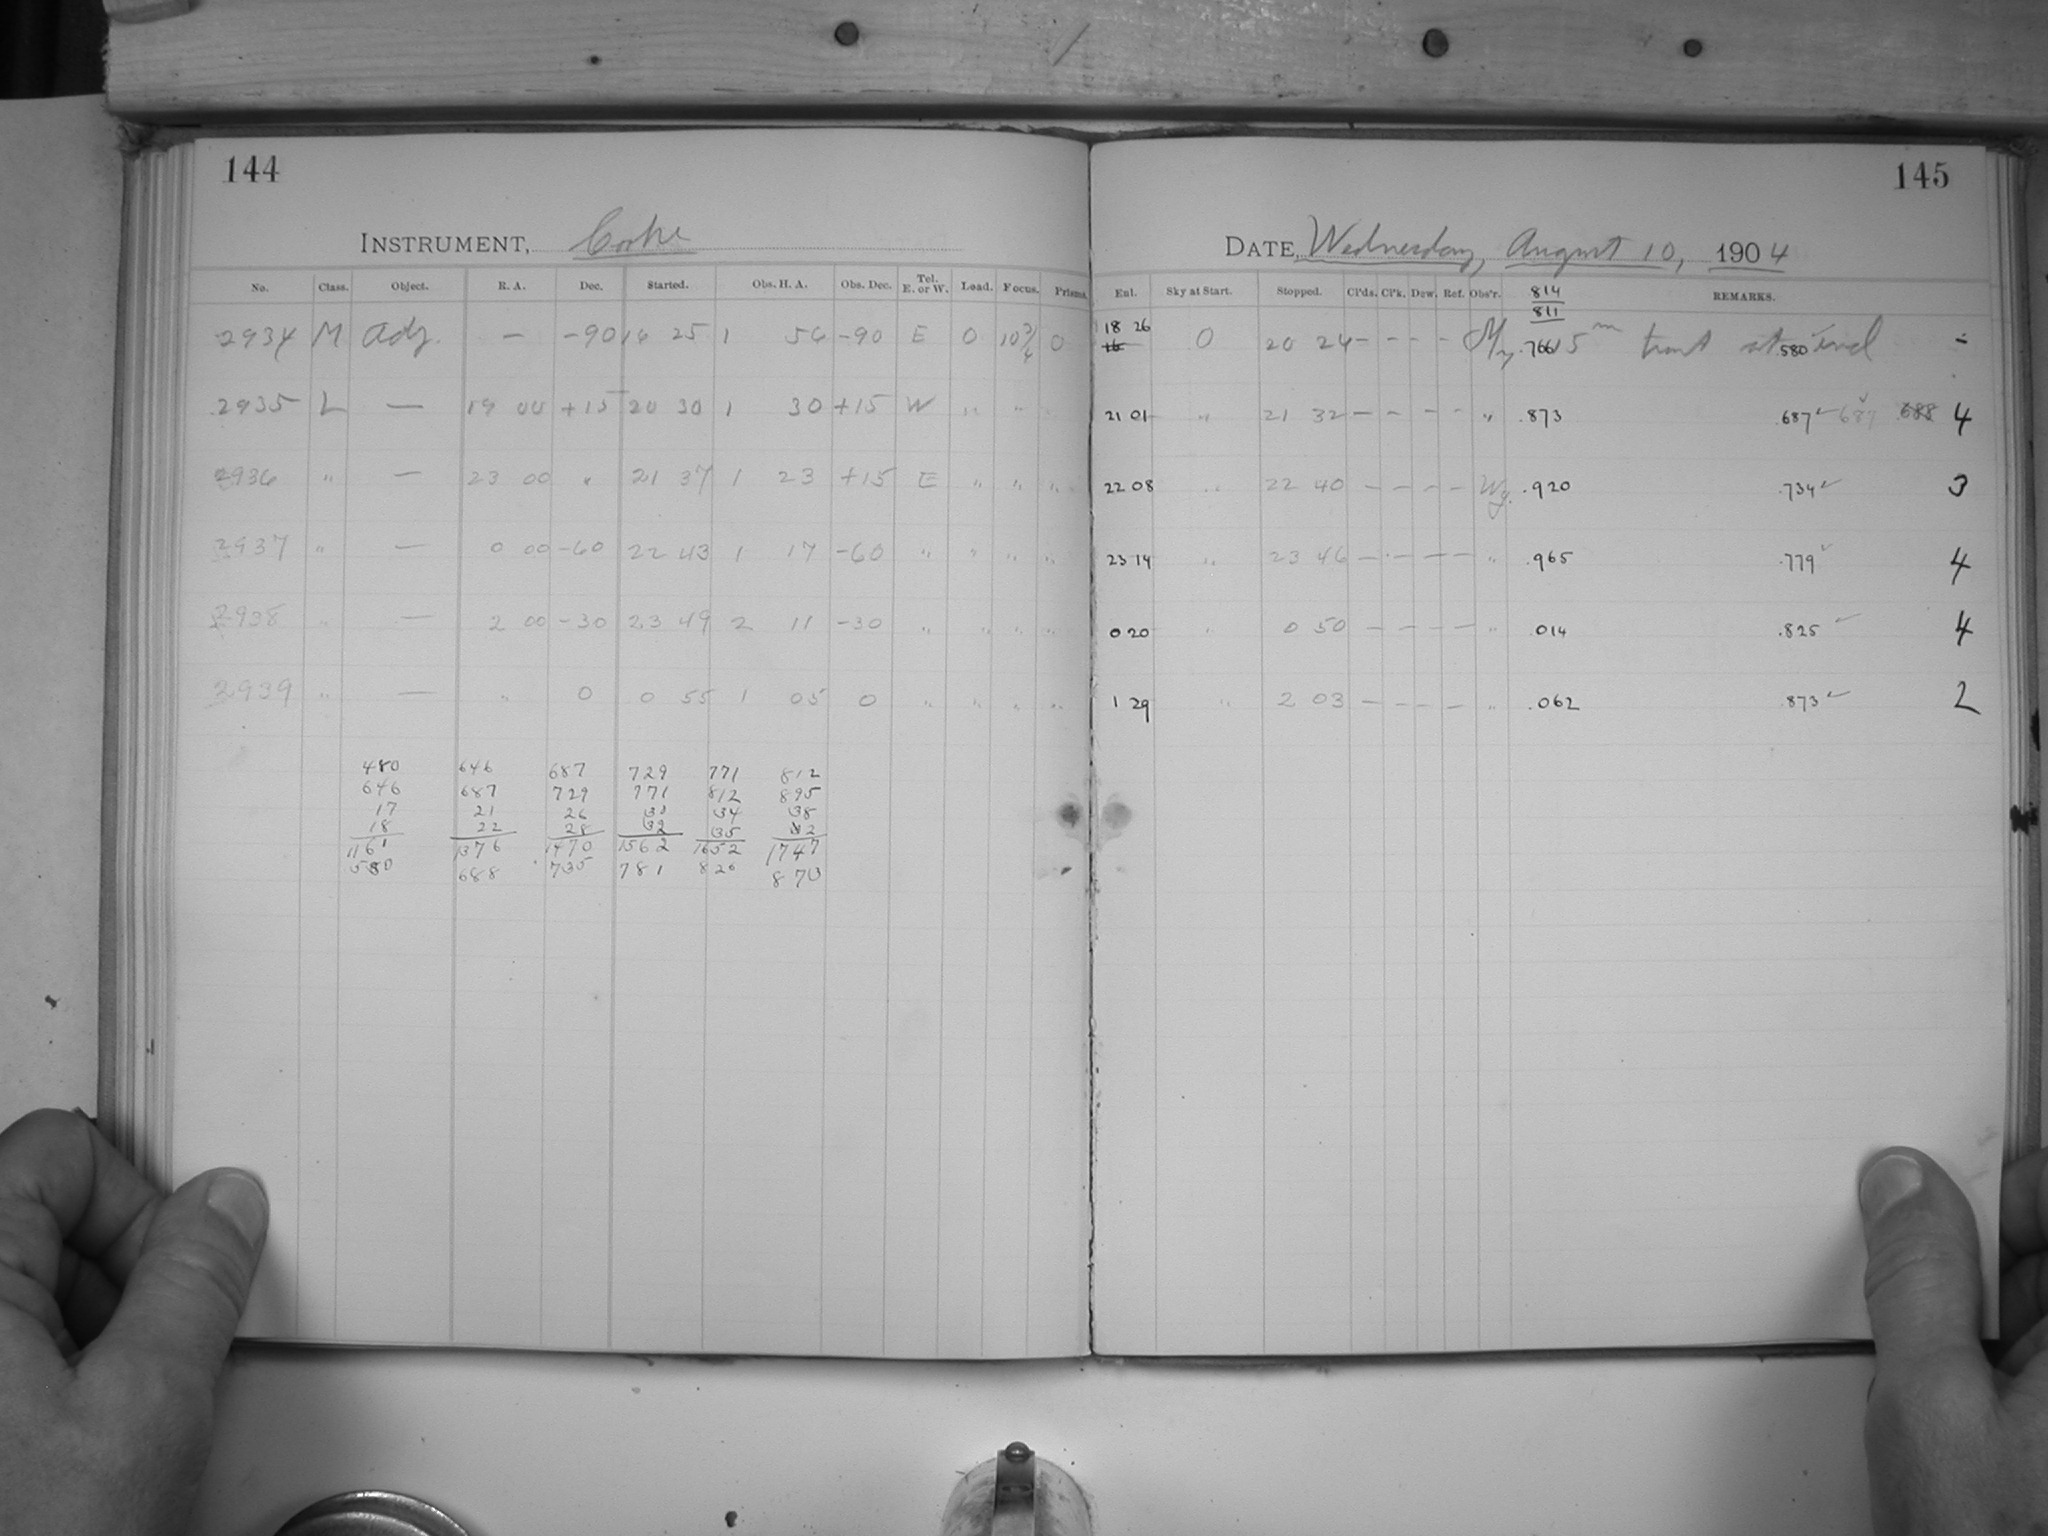 144
INSTRUMENT, Cooke
No. Class. Object. R. A. Dec. Started. Obs. H. A. Obs. Dec. Tel. E. or W. Load. Focus. Prisms.
2934 M Adj. — -90 16 25 1 56 -90 E 0 10 3/4 0
2935 L — 19 00 +15 20 30 1 30 +15 W " " "
2936 " — 23 00 " 21 37 1 23 +15 E " " "
2937 " — 0 00 -60 22 43 1 17 -60 " " " "
2938 " — 2 00 -30 23 49 2 11 -30 " " " "
2939 " — " 0 0 55 1 05 0 " " " "
480 646 687 729 771 812
646 687 729 771 812 895
17 21 26 30 34 38
18 22 28 32 35 42
1161 1376 1470 1562 1652 1747
580 688 735 781 826 873
145
DATE, Wednesday, August 10, 1904
Enl. Sky at Start. Stopped. Cl'ds. Cl'k. Dew. Ref. Obs'r. REMARKS.
814
811
18 26 0 20 24 — — — — My .766 5m trail at end .580 -
21 01 " 21 32 — — — — " .873 .687 687 .688 4
22 08 " 22 40 — — — — Wy. .920 .734 3
23 14 " 23 46 — — — — " .965 .779 4
0 20 " 0 50 — — — — " .014 .825 4
1 29 " 2 03 — — — — " .062 .873 2